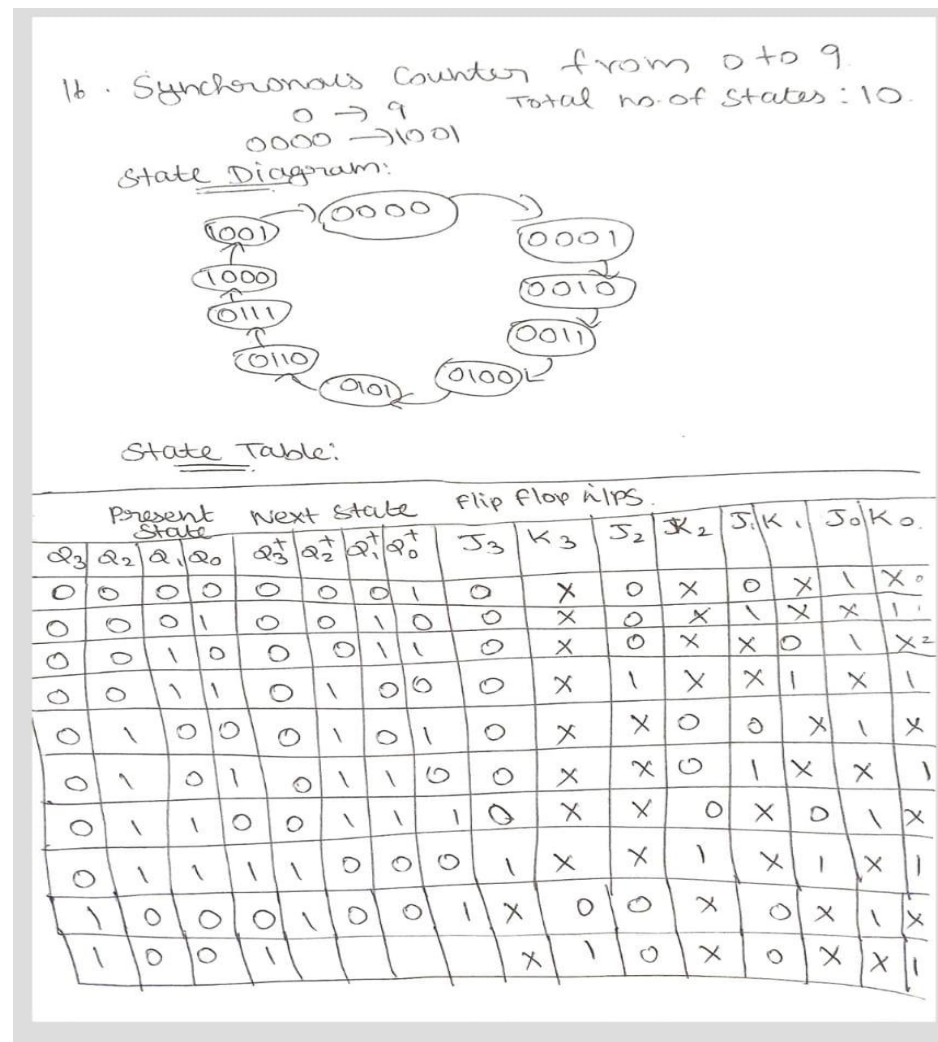 16. Synchronous Counter from 0 to 9.
0 → 9 Total no. of States : 10.
0000 → 1001
State Diagram:
0000
1001
0001
1000
0010
0111
0011
0110
0100
0101
State Table:
Present State Next State Flip Flop i/ps.
Q3 Q2 Q1 Q0 Q3+ Q2+ Q1+ Q0+ J3 K3 J2 K2 J1 K1 J0 K0
0 0 0 0 0 0 0 1 0 X 0 X 0 X 1 X 0
0 0 0 1 0 0 1 0 0 X 0 X 1 X X 1 1
0 0 1 0 0 0 1 1 0 X 0 X X 0 1 X 2
0 0 1 1 0 1 0 0 0 X 1 X X 1 X 1
0 1 0 0 0 1 0 1 0 X X 0 0 X 1 X
0 1 0 1 0 1 1 0 0 X X 0 1 X X 1
0 1 1 0 0 1 1 1 0 X X 0 X 0 1 X
0 1 1 1 1 0 0 0 1 X X 1 X 1 X 1
1 0 0 0 1 0 0 1 X 0 0 X 0 X 1 X
1 0 0 1 X 1 0 X 0 X X 1